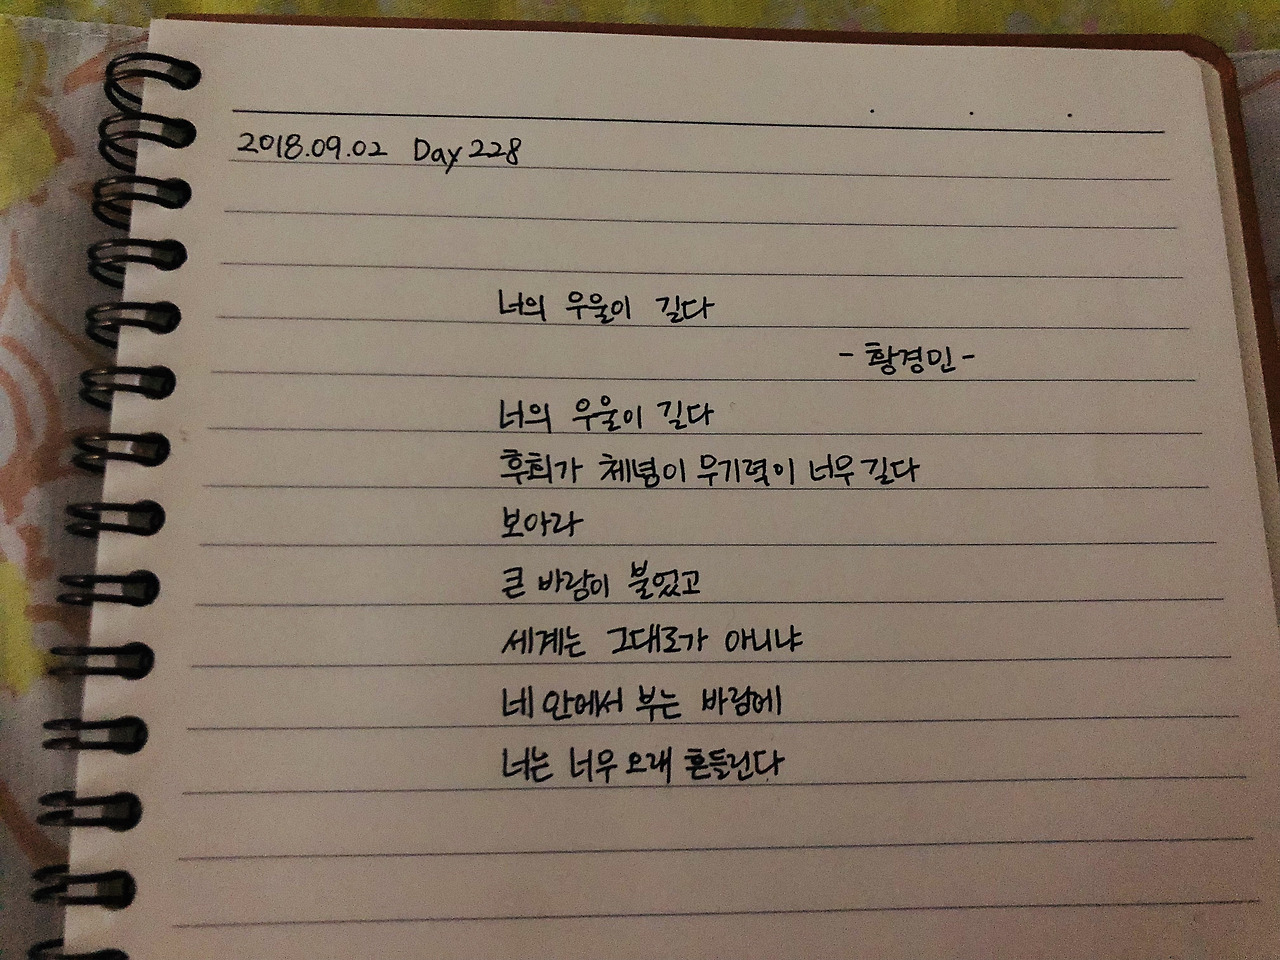 2018.09.02 Day 228
너의 우울이 길다
- 황경민 -
너의 우울이 길다
후회가 체념이 무기력이 너무 길다
보아라
큰 바람이 불었고
세계는 그대로가 아니냐
네 안에서 부는 바람에
너는 너무 오래 흔들린다